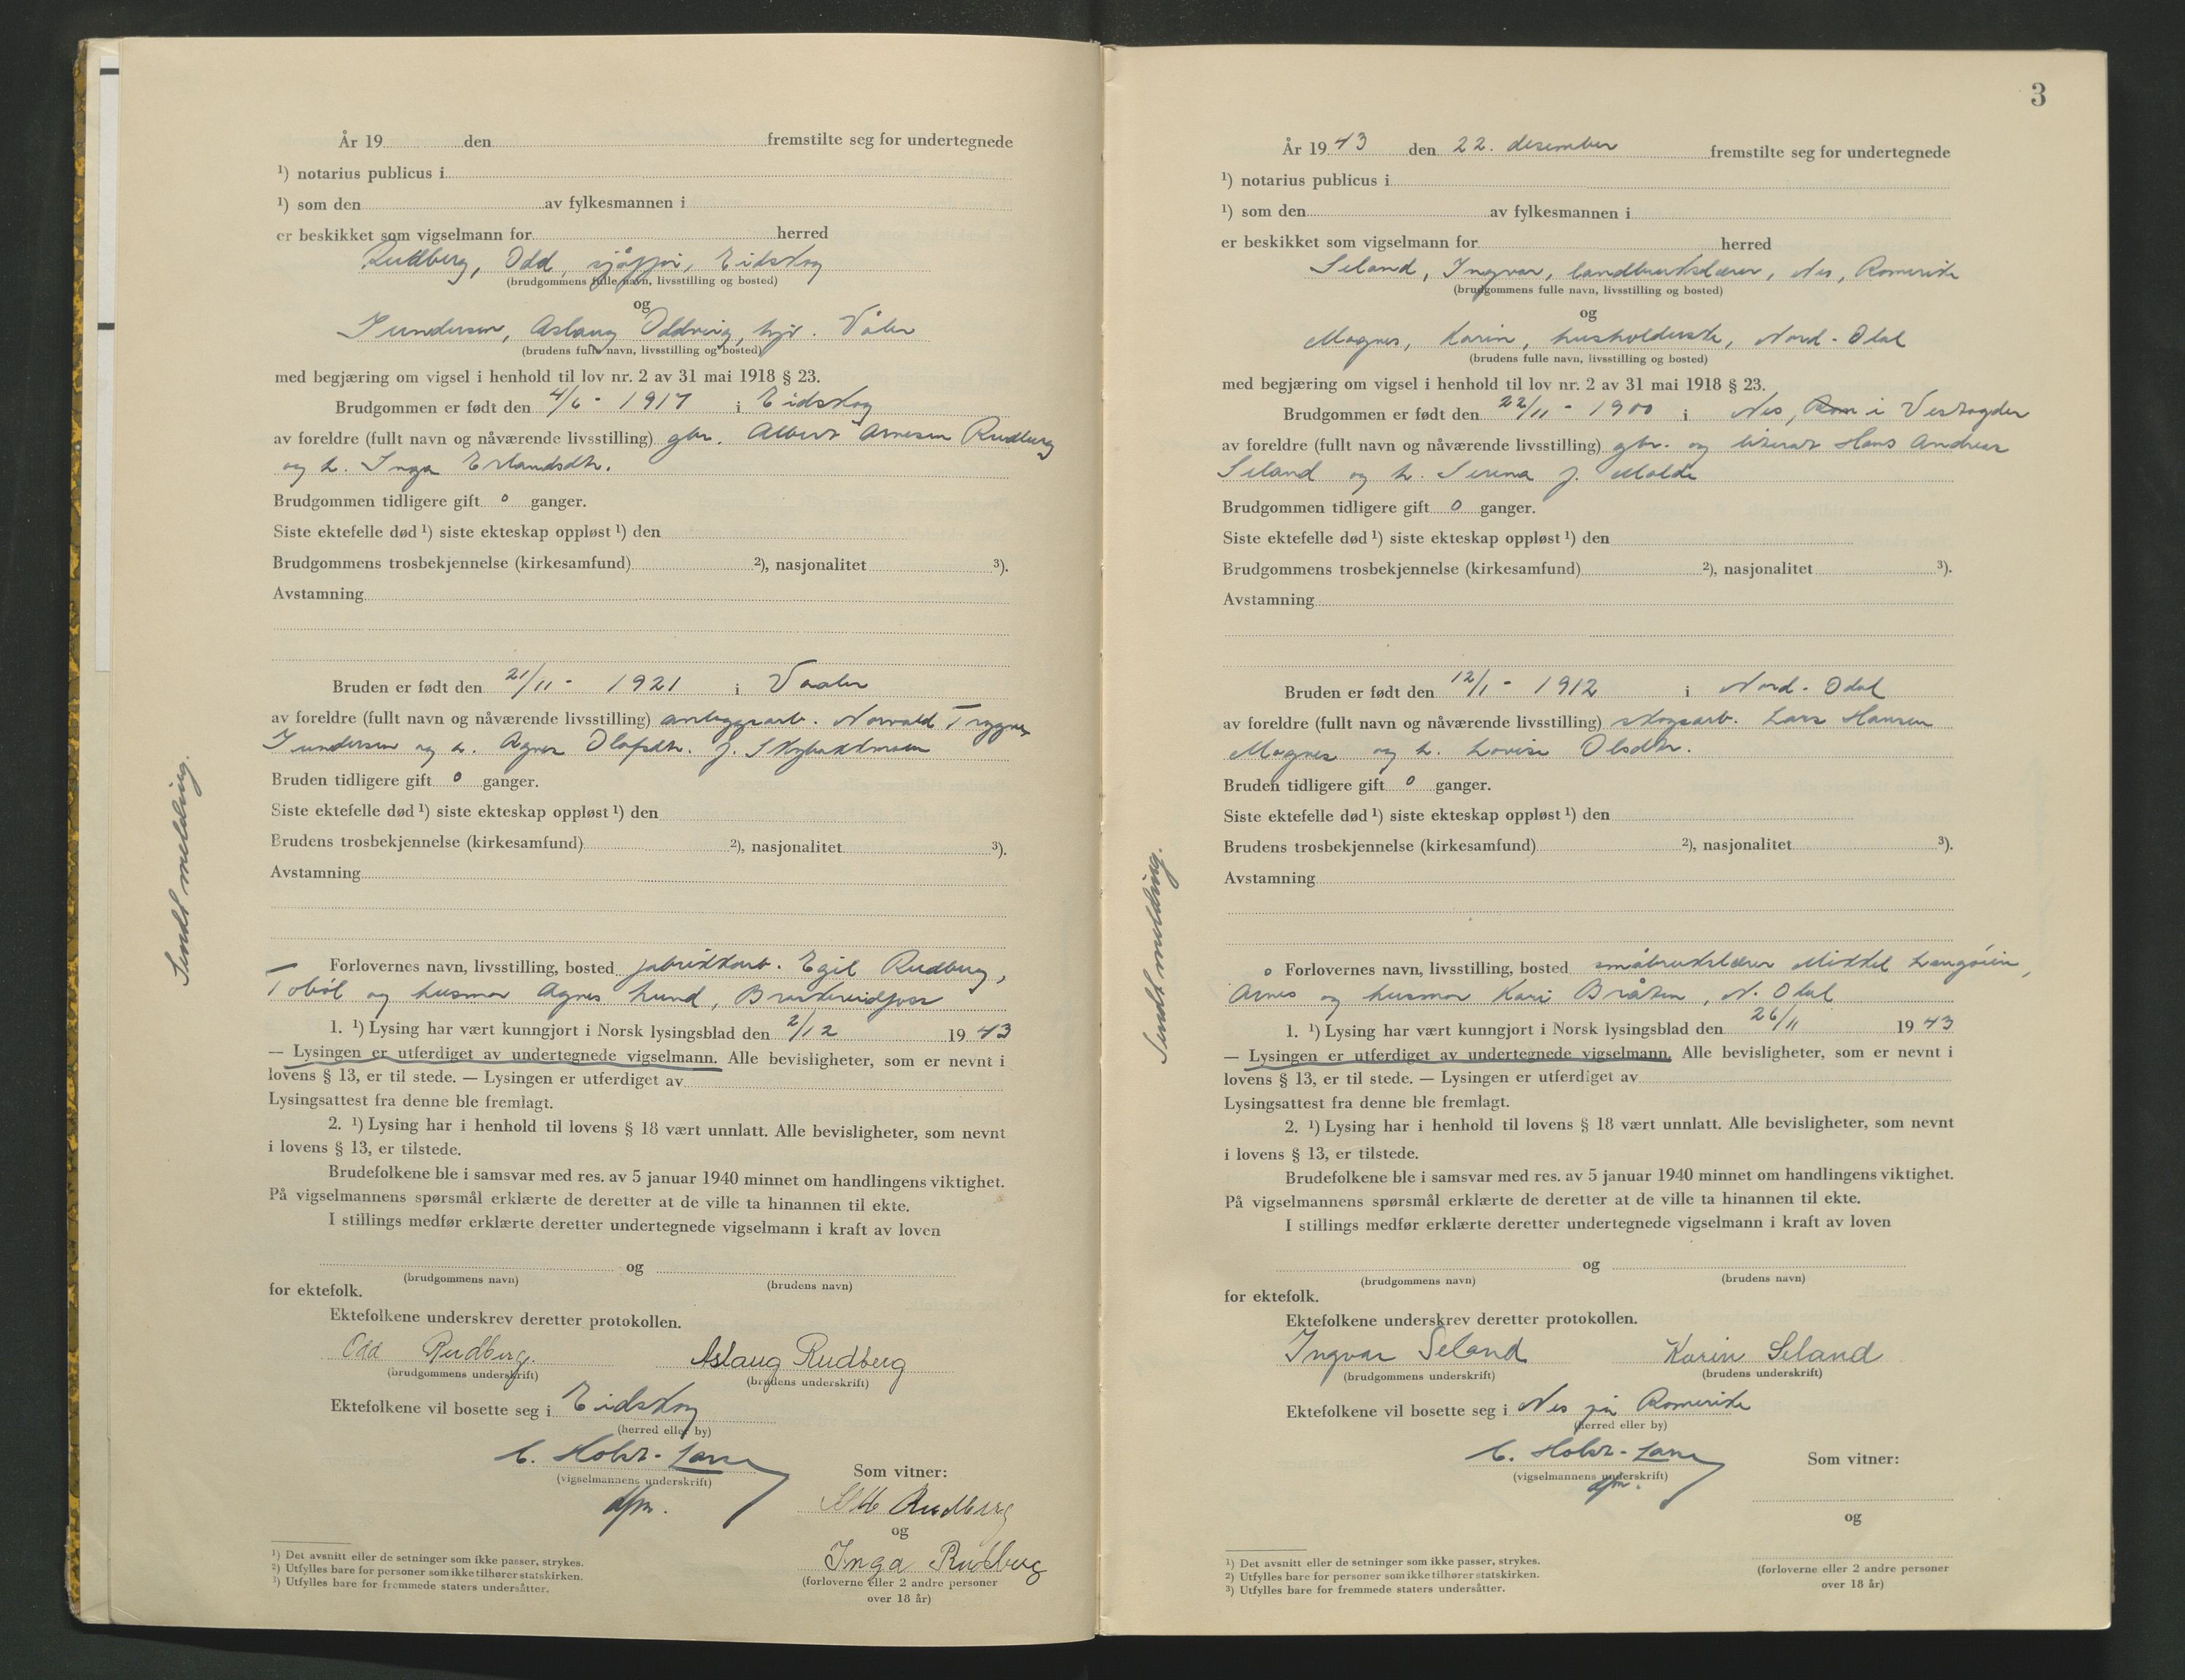 År 19 den fremstilte seg for undertegnede
¹) notarius publicus i
¹) som den av fylkesmannen i
er beskikket som vigselmann for herred
Rudberg, Odd, sjåffør, Eidskog
(brudgommens fulle navn, livsstilling og bosted)
og
Gundersen, Aslaug Oddveig, hjv. Våler
(brudens fulle navn, livsstilling og bosted)
med begjæring om vigsel i henhold til lov nr. 2 av 31 mai 1918 § 23.
Brudgommen er født den 4/6 - 1917 i Eidskog
av foreldre (fullt navn og nåværende livsstilling) gbr. Albert Arnesen Rudberg
og h. Inga Erlandsdtr.
Brudgommen tidligere gift 0 ganger.
Siste ektefelle død ¹) siste ekteskap oppløst ¹) den
Brudgommens trosbekjennelse (kirkesamfund) ²), nasjonalitet ³).
Avstamning
Bruden er født den 21/11 - 1921 i Vaaler
av foreldre (fullt navn og nåværende livsstilling) anleggsarb. Norvald Trygve
Gundersen og h. Agnes Olafsdtr. f.
Bruden tidligere gift 0 ganger.
Siste ektefelle død ¹) siste ekteskap oppløst ¹) den
Brudens trosbekjennelse (kirkesamfund) ²), nasjonalitet ³).
Avstamning
Forlovernes navn, livsstilling, bosted fabrikkarb. Egil Rudberg,
Tobøl og husmor Agnes Lund,
1. ¹) Lysing har vært kunngjort i Norsk lysingsblad den 2/12 19 43
— Lysingen er utferdiget av undertegnede vigselmann. Alle bevisligheter, som er nevnt i
lovens § 13, er til stede. — Lysingen er utferdiget av
Lysingsattest fra denne ble fremlagt.
2. ¹) Lysing har i henhold til lovens § 18 vært unnlatt. Alle bevisligheter, som nevnt
i lovens § 13, er tilstede.
Brudefolkene ble i samsvar med res. av 5 januar 1940 minnet om handlingens viktighet.
På vigselmannens spørsmål erklærte de deretter at de ville ta hinannen til ekte.
I stillings medfør erklærte deretter undertegnede vigselmann i kraft av loven
og
(brudgommens navn) (brudens navn)
for ektefolk.
Ektefolkene underskrev deretter protokollen.
Odd Rudberg. Aslaug Rudberg
(brudgommens underskrift) (brudens underskrift)
Ektefolkene vil bosette seg i Eidskog
(herred eller by)
C. Holst-Larsen
(vigselmannens underskrift)
dfm.
Som vitner:
Rudberg
og
Inga Rudberg
(forloverne eller 2 andre personer
over 18 år)
¹) Det avsnitt eller de setninger som ikke passer, strykes.
²) Utfylles bare for personer som ikke tilhører statskirken.
³) Utfylles bare for fremmede staters undersåtter.
Sendt melding.
3
År 19 43 den 22. desember fremstilte seg for undertegnede
¹) notarius publicus i
¹) som den av fylkesmannen i
er beskikket som vigselmann for herred
Seland, Ingvar, landbrukslærer, Nes, Romerike
(brudgommens fulle navn, livsstilling og bosted)
og
Magnes, Karin, husholderske, Nord-Odal
(brudens fulle navn, livsstilling og bosted)
med begjæring om vigsel i henhold til lov nr. 2 av 31 mai 1918 § 23.
Brudgommen er født den 22/11 - 1900 i Nes, Rom i Vestagder
av foreldre (fullt navn og nåværende livsstilling) gbr. og literat Hans Andreas
Seland og h. Serina f. Molde
Brudgommen tidligere gift 0 ganger.
Siste ektefelle død ¹) siste ekteskap oppløst ¹) den
Brudgommens trosbekjennelse (kirkesamfund) ²), nasjonalitet ³).
Avstamning
Bruden er født den 12/1 - 1912 i Nord-Odal
av foreldre (fullt navn og nåværende livsstilling) skogsarb. Lars Hansen
Magnes og h. Lovise Olsdtr.
Bruden tidligere gift 0 ganger.
Siste ektefelle død ¹) siste ekteskap oppløst ¹) den
Brudens trosbekjennelse (kirkesamfund) ²), nasjonalitet ³).
Avstamning
Forlovernes navn, livsstilling, bosted småbrukslærer Mikkel Langøien,
Årnes og husmor Kari Bråten, N. Odal
1. ¹) Lysing har vært kunngjort i Norsk lysingsblad den 26/11 19 43
— Lysingen er utferdiget av undertegnede vigselmann. Alle bevisligheter, som er nevnt i
lovens § 13, er til stede. — Lysingen er utferdiget av
Lysingsattest fra denne ble fremlagt.
2. ¹) Lysing har i henhold til lovens § 18 vært unnlatt. Alle bevisligheter, som nevnt
i lovens § 13, er tilstede.
Brudefolkene ble i samsvar med res. av 5 januar 1940 minnet om handlingens viktighet.
På vigselmannens spørsmål erklærte de deretter at de ville ta hinannen til ekte.
I stillings medfør erklærte deretter undertegnede vigselmann i kraft av loven
og
(brudgommens navn) (brudens navn)
for ektefolk.
Ektefolkene underskrev deretter protokollen.
Ingvar Seland Karin Seland
(brudgommens underskrift) (brudens underskrift)
Ektefolkene vil bosette seg i Nes på Romerike
(herred eller by)
C. Holst-Larsen
(vigselmannens underskrift)
dfm.
Som vitner:
og
(forloverne eller 2 andre personer
over 18 år)
¹) Det avsnitt eller de setninger som ikke passer, strykes.
²) Utfylles bare for personer som ikke tilhører statskirken.
³) Utfylles bare for fremmede staters undersåtter.
Sendt melding.